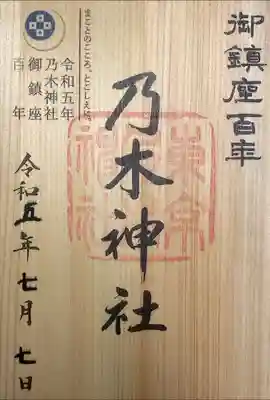 御鎮座百年
乃木神社
まことのこころ、とこしえに。
令和五年
乃木神社
御鎮座
百年
令和五年七月七日